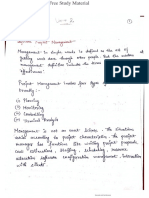 Free Study Material
Unit-2
①
Software Project Management
Management in simple words is defined as the art of
getting work done through other people. But the modern
management definition includes the
effectiveness.
Project Management involves four types of
Namely :-
1) Planning
2) Monitoring
3) Scheduling
4) Critical Analysis
Management is not an exact science. The situations
varied according to project characteristics. The project
manager has functions like writing project proposals,
cost estimations, staffing, scheduling, resource
allocation software configuration management interaction
with clients